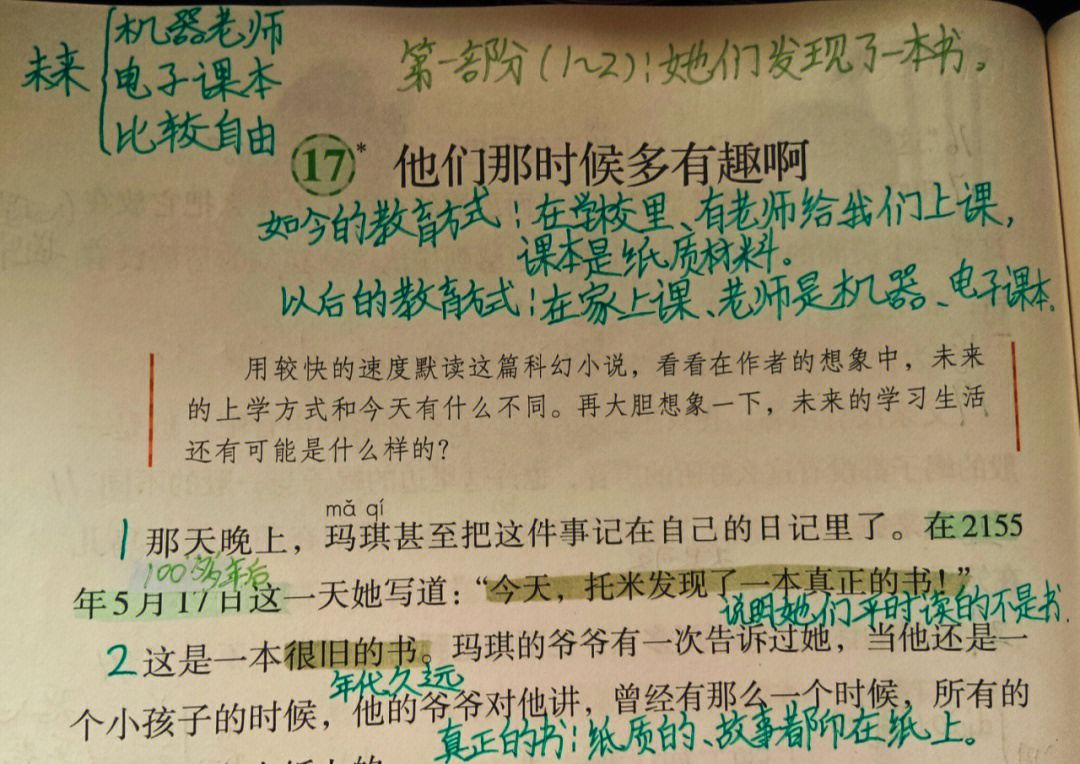 未来
机器老师
电子课本
比较自由
第一部分(1~2):她们发现了一本书。
17* 他们那时候多有趣啊
如今的教育方式:在学校里、有老师给我们上课,
课本是纸质材料。
以后的教育方式:在家上课、老师是机器、电子课本.
用较快的速度默读这篇科幻小说,看看在作者的想象中,未来
的上学方式和今天有什么不同。再大胆想象一下,未来的学习生活
还有可能是什么样的?
mǎ qí
1 那天晚上,玛琪甚至把这件事记在自己的日记里了。在2155
100多年后
年5月17日这一天她写道:“今天,托米发现了一本真正的书!”
说明她们平时读的不是书.
2 这是一本很旧的书。玛琪的爷爷有一次告诉过她,当他还是一
年代久远
个小孩子的时候,他的爷爷对他讲,曾经有那么一个时候,所有的
真正的书:纸质的、故事都印在纸上。